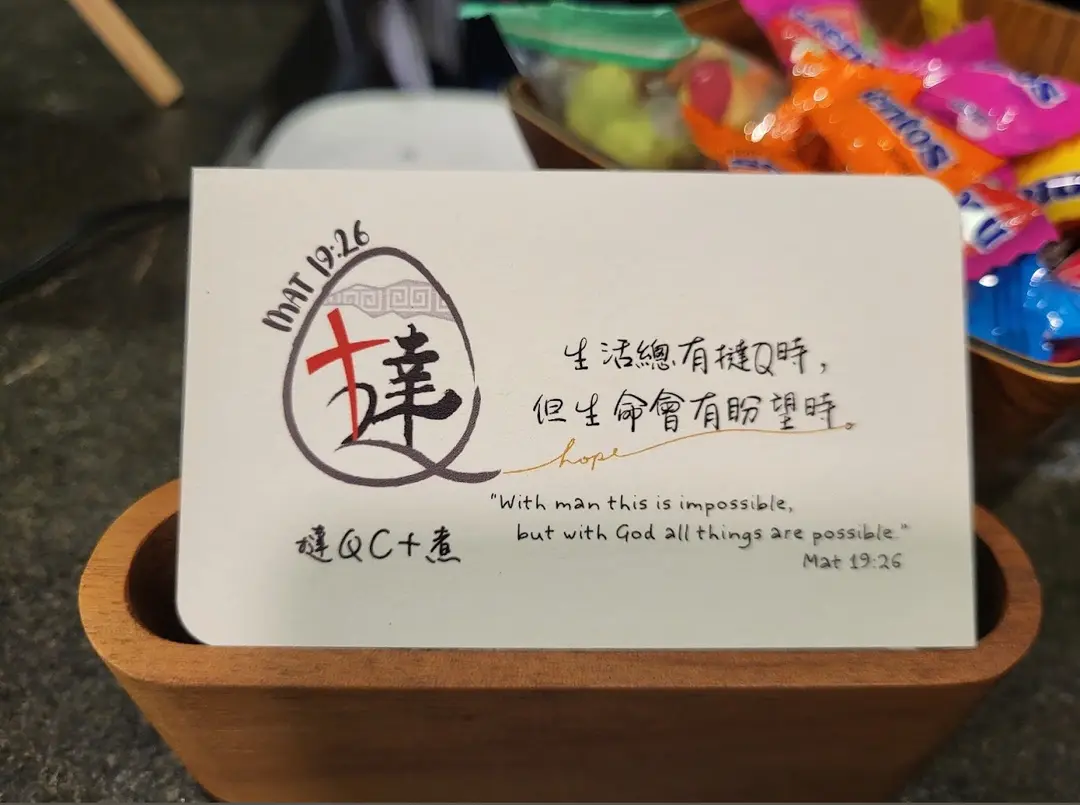 MAT 19:26
撻
生活總有撻Q時，
但生命會有盼望時。
hope
"With man this is impossible,
but with God all things are possible."
Mat 19:26
撻QC+煮
entos